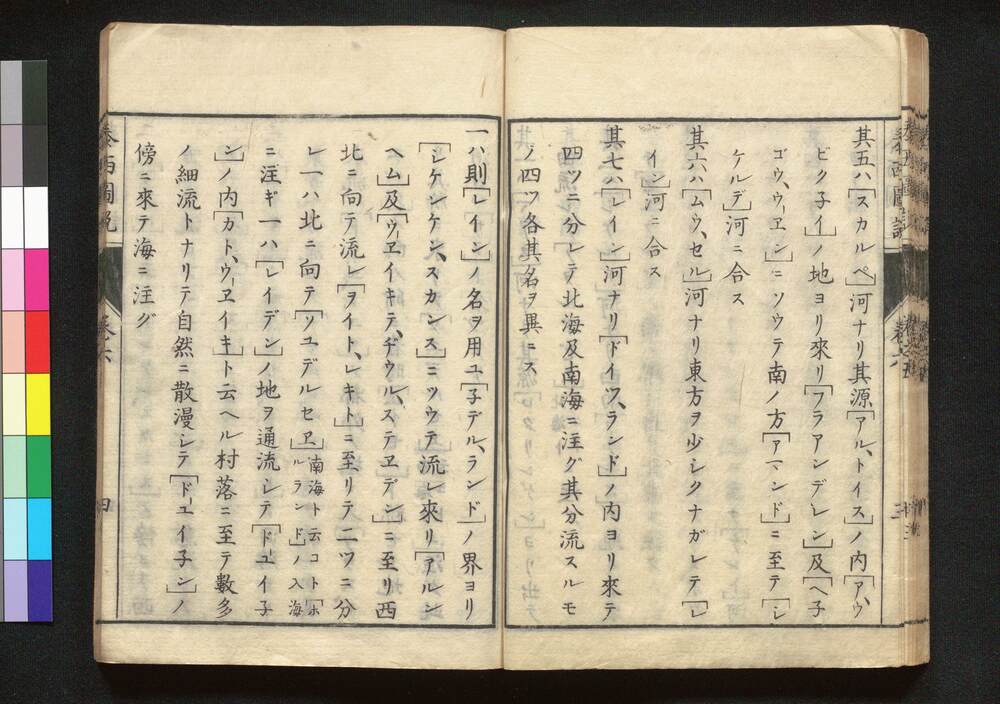 其五ハ「スカルペ」河ナリ其源「アル、トイス」ノ内「アウ
ビク子イ」ノ地ヨリ來リ「フラアンデレン」及「ヘ子
ゴウ、ウーエン」ニソウテ南ノ方「アーンド」ニ至テ「シ
ケルデ」河ニ合ス
其六ハ「ムウ、セル」河ナリ東方ヲ少シクナガレテ「レ
イン」河ニ合ス
其七ハ「レイン」河ナリ「ドイツ、ランド」ノ内ヨリ來テ
四ツニ分レテ北海及南海ニ注グ其分流スルモ
ノ四ツ各其名ヲ異ニス
三
泰西圖説
卷六
一ハ則「レイン」ノ名ヲ用ユ「子デル、ランド」ノ界ヨリ
「シケンケン、スカンス」ニツウテ流レ來リ「アルン
ヘム」及「ウーヱイキテ、ヂウル、ステヱデン」ニ至リ西
北ニ向テ流レ「ヲイト、レキト」ニ至リテ二ツニ分
レ一ハ北ニ向テ「ソユデルセヱ」南海ト云コト「ホルランド」ノ入海
ニ注ギ一ハ「レイデン」ノ地ヲ通流シテ「ドユイ子
ン」ノ内「カト、ウーヱイキ」ト云ヘル村落ニ至テ數多
ノ細流トナリテ自然ニ散漫シテ「ドユイ子ン」ノ
傍ニ來テ海ニ注グ
泰西圖説
卷六
四